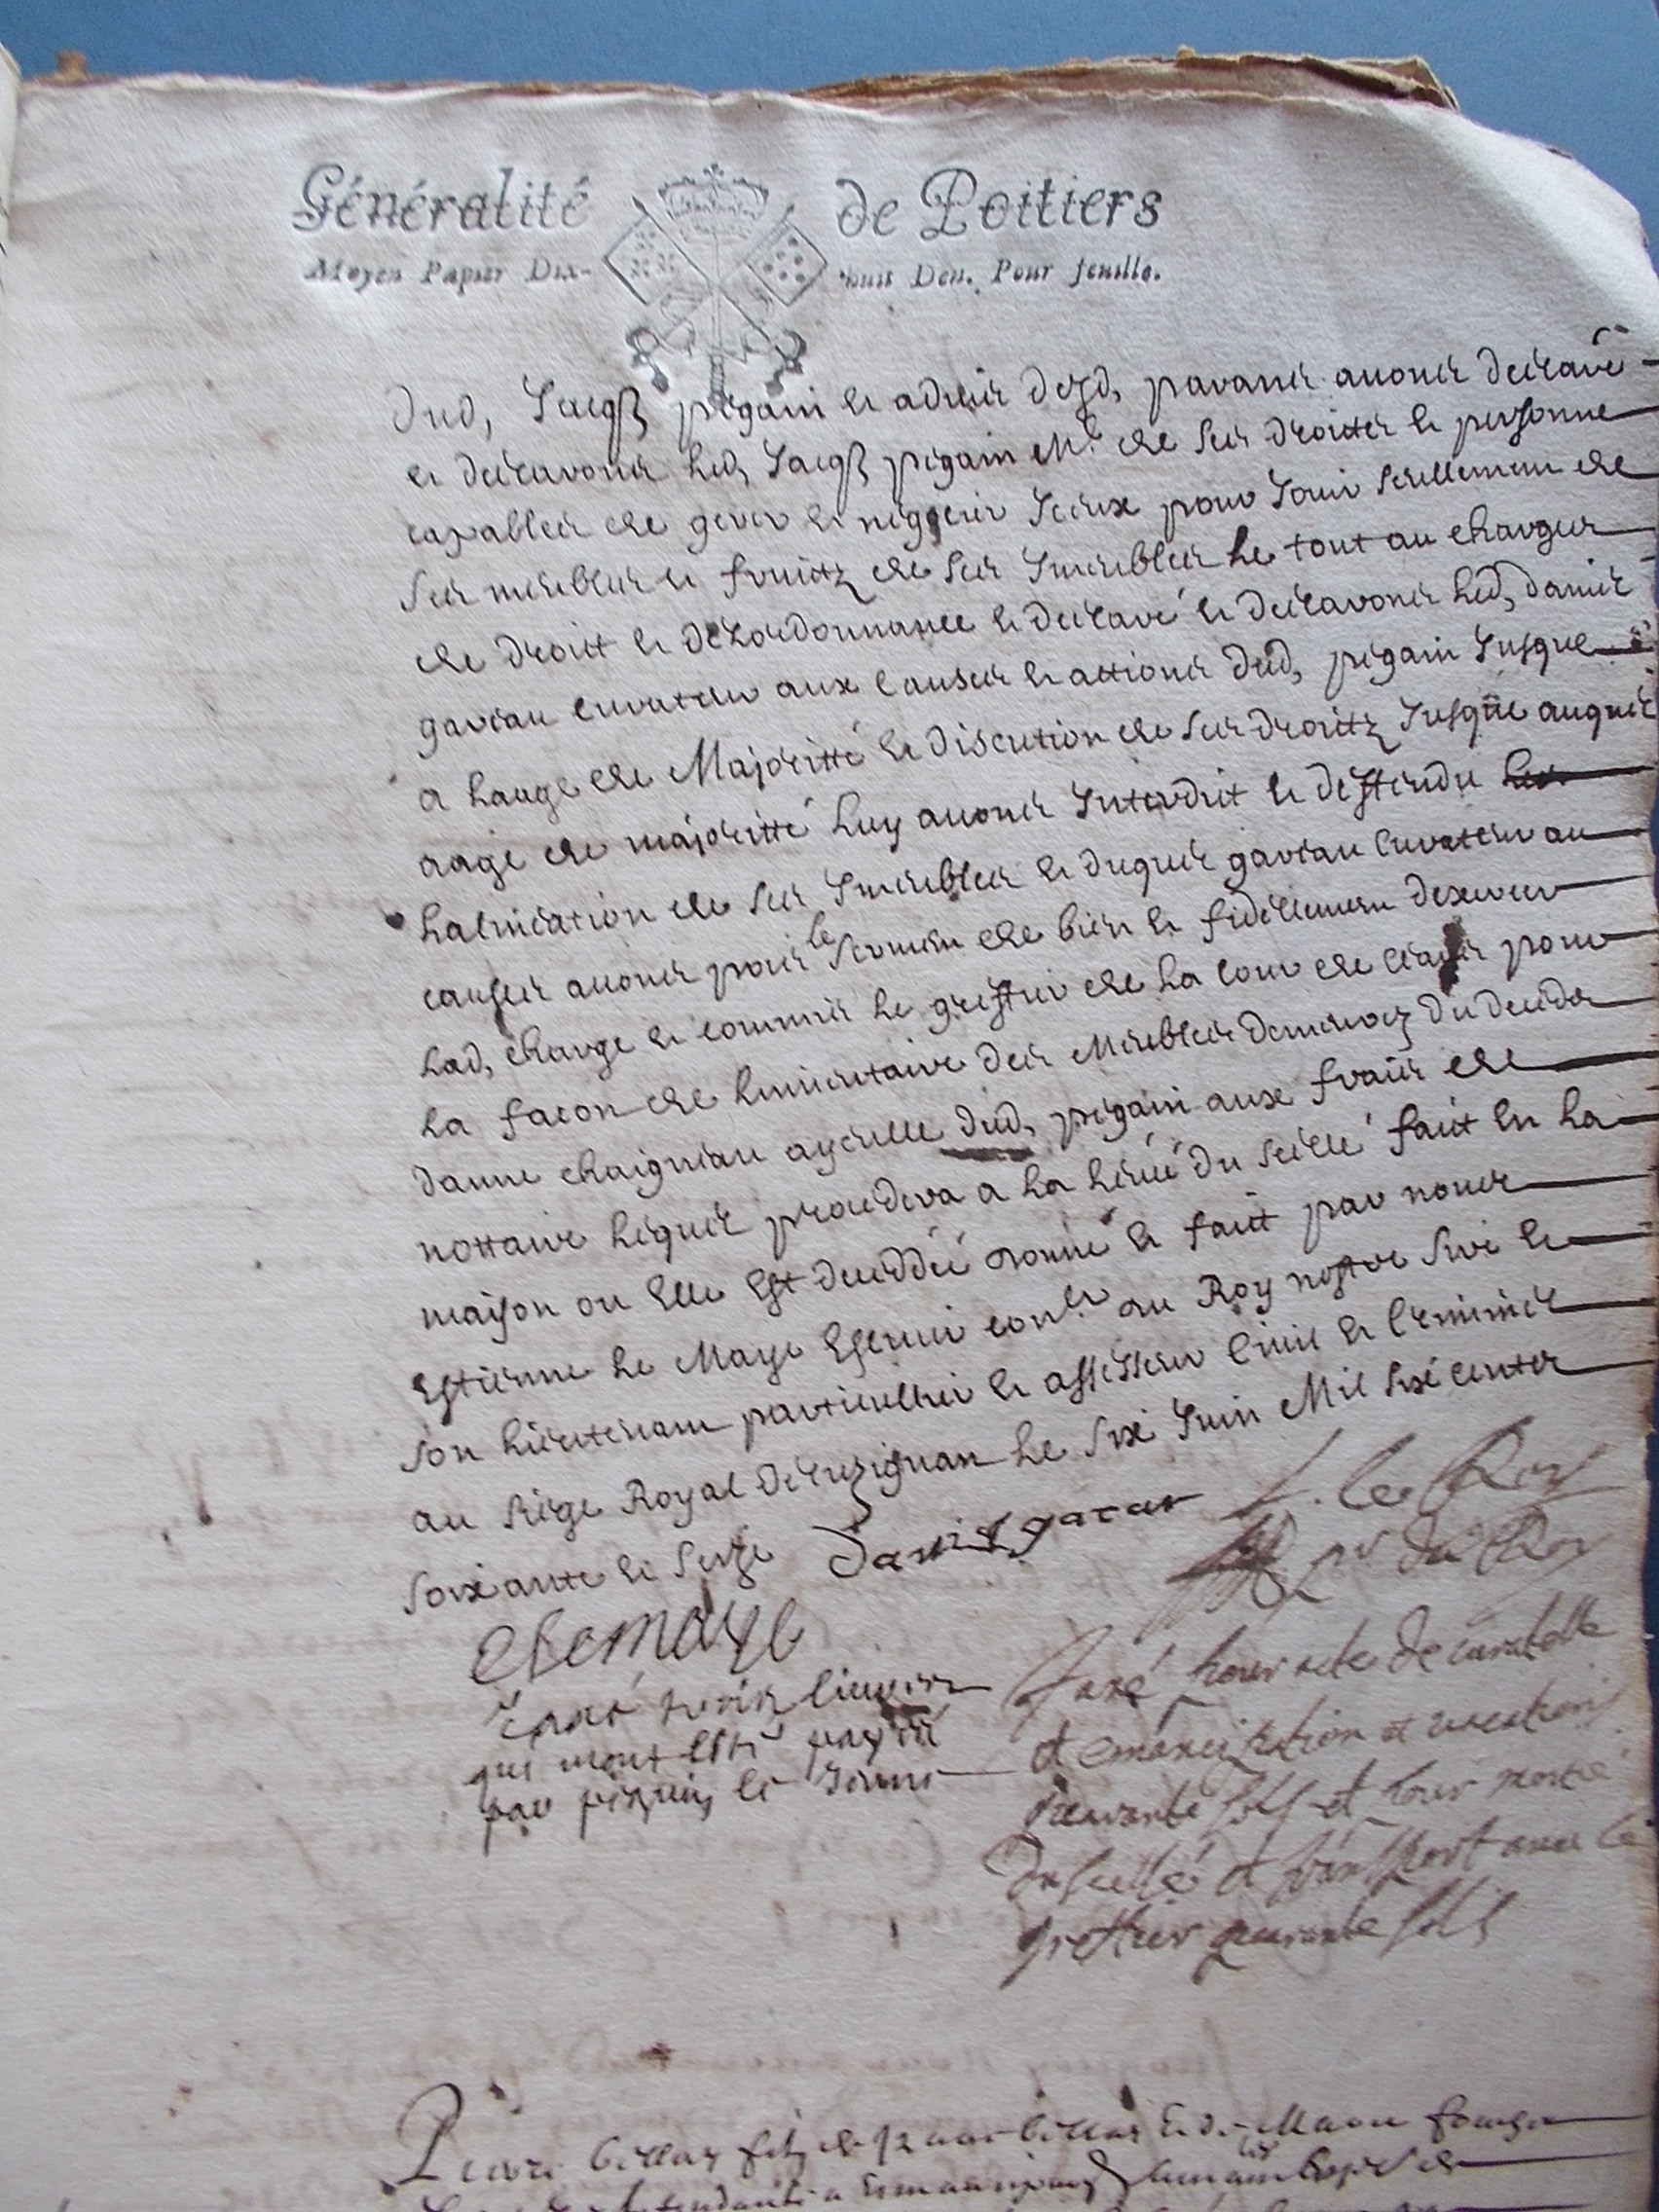 Généralité de Poitiers
Moyen Papier Dix-huit Den. Pour feuille.
Dud, Jacq pigain et advis desd, parans avons declaré
et declarons led, Jacq pigain Mr de ses droitz et personne
capable de gerer et negocier iceux pour Jouir seullement de
ses meubles et fruitz de ses Immeubles le tout au charges
de droit et de Lordonnance et declaré et declarons led, david
gaviau curateur aux causes et actions dud, pigain Jusque
a laage de Majoritté et discution de ses droitz Jusque auquel
aage de majoritté luy avons Interdit et deffendu
lalienation de ses Immeubles et duquel gaviau curateur au
causes avons pris le serment de bien et fidellement dexercer
lad, charge et commis le greffier de la cour de ceans pour
la facon de linventaire des Meubles demeurez du deces de
danne chaigneau ayeulle dud, pigain aux frais de
nottaire lequel procedera a la levé du scellé fait en la
maison ou elle est deceddée donné et fait par nous
Estienne le Maye Escuier coner du Roy nostre sire et
son lieutenant particullier et assesseur civil et criminel
au siege Royal de Lusignan le six Juin Mil six centz
soixante et seize david gaviau J. le Roy
pr du Roy
E lemaye
Taxé trois livres
qui mont esté payée
par pigain le Jeune
Taxé pour acte de curatelle
et emancipation et vacation
quarante sols et pour moitié
du scellé et transport avec le
greffier quarante sols
Pierre billas fils de et de Marie